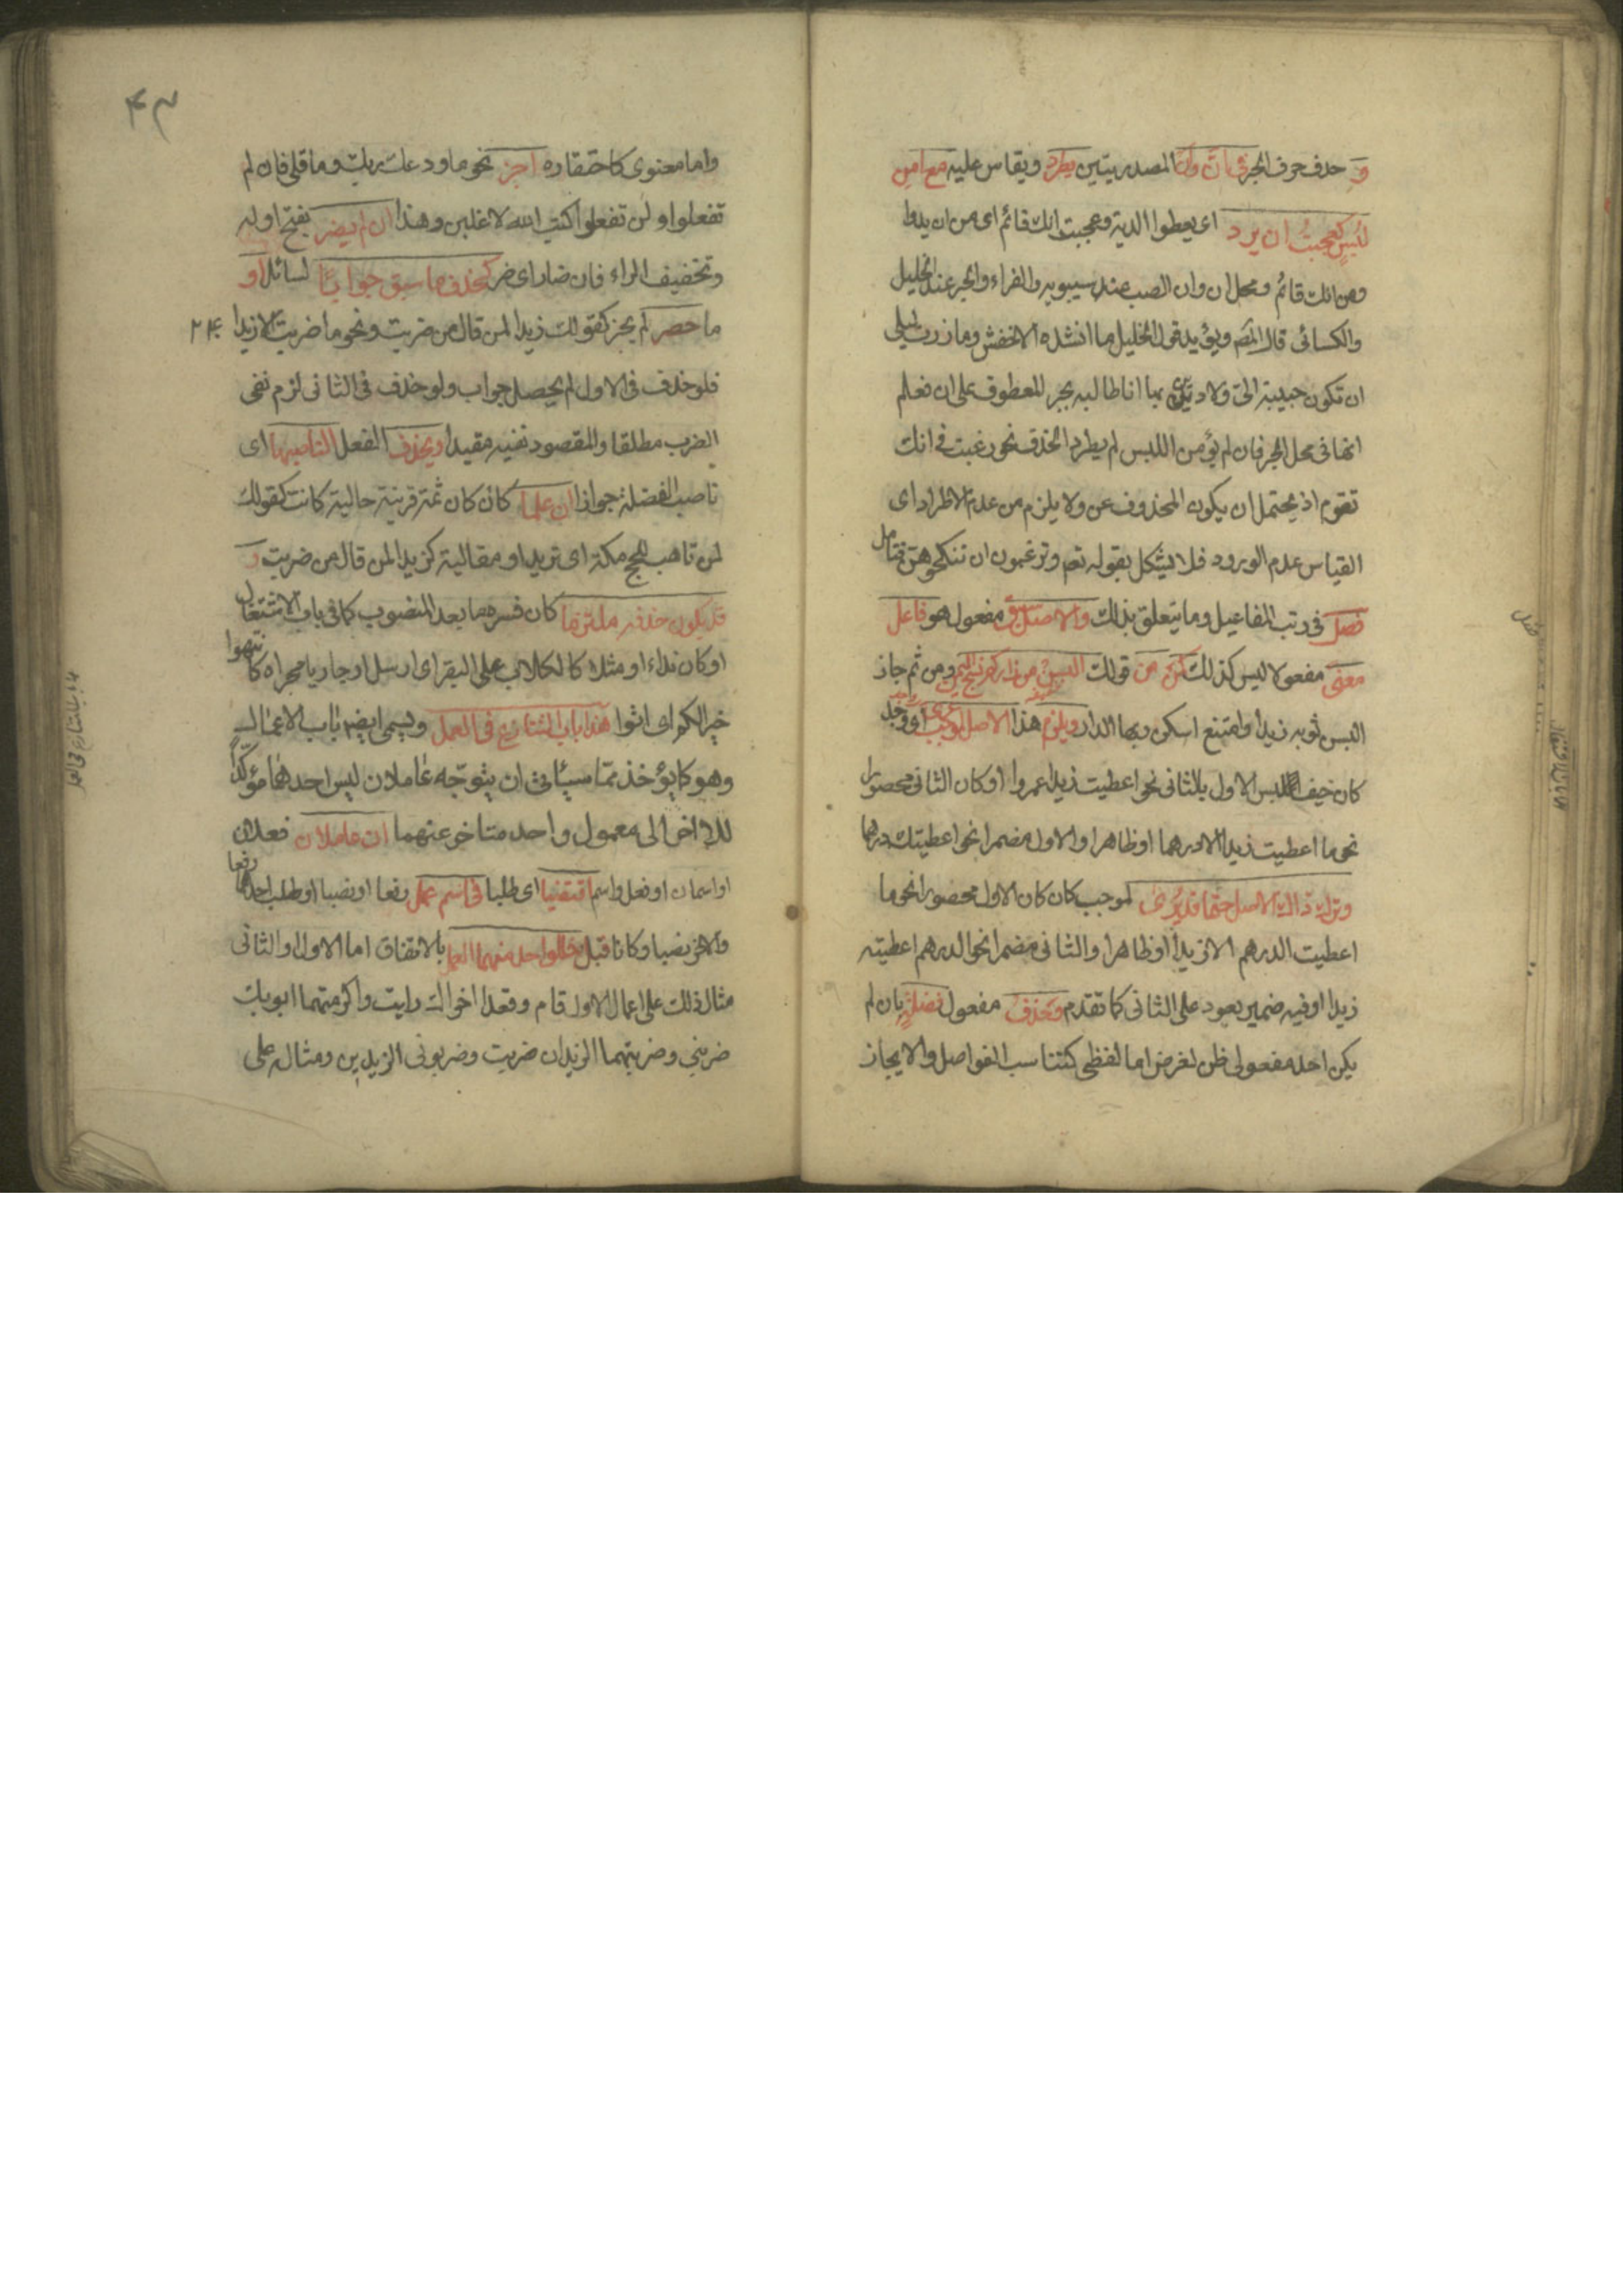 و حذف حرف الجر فى انّ وان المصدريتين يطرد ويقاس عليه مع امن
لبس كعجبت ان يدوا اى يعطوا الدية وعجبت انك قائم اى من ان يدوا
ومن انك قائم ومحل ان وان النصب عند سيبويه والفراء والجر عند الخليل
والكسائى قال المص ويؤيد قول الخليل ما انشده الاخفش وما زرت ليلى
ان تكون حبيبة الىّ ولا دين بها انا طالبه بجر المعطوف على ان فعلم
انها فى محل الجر فان لم يؤمن اللبس لم يطرد الحذف نحو رغبت فى انك
تقوم اذ يحتمل ان يكون المحذوف عن ولا يلزم من عدم الاطراد اى
القياس عدم الورود فلا يشكل بقوله تعم وترغبون ان تنكحوهن فتامل
فصل فى رتب المفاعيل وما يتعلق بذلك والاصل سبق مفعول هو فاعل
معنى مفعولا ليس كذلك كمن من قولك البسن من زاركم نسج اليمن ومن ثم جاز
البس ثوبه زيدا وامتنع اسكن ربها الدار ويلزم هذا الاصل لموجب عرى اى وجد
كان خيف لبس الاول بالثانى نحو اعطيت زيدا عمروا او كان الثانى محصورا
نحو ما اعطيت زيدا الا درهما او ظاهرا والاول مضمرا نحو اعطيتك درهما
وترك ذاك الاصل حتما قد يرى لموجب كان كان الاول محصورا نحو ما
اعطيت الدرهم الا زيدا او ظاهرا والثانى مضمرا نحو الدرهم اعطيته
زيدا او فيه ضمير يعود على الثانى كما تقدم وحذف مفعول فضلة بان لم
يكن احد مفعولى ظن لغرض اما لفظى كتناسب الفواصل والايجاز
۴۳
واما معنوى كاحتقاره اجز نحو ما ودعك ربك وما قلى فان لم
تفعلوا ولن تفعلوا كتب الله لاغلبن وهذا ان لم يضر بفتح اوله
وتخفيف الراء فان ضار اى ضر كحذف ما سيق جوابا لسائل او
ما حصر لم يجز كقولك زيدا لمن قال من ضربت ونحو ما ضربت الا زيدا
فلو حذف فى الاول لم يحصل جواب ولو حذف فى الثانى لزم نفى
الضرب مطلقا والمقصود نفيه مقيدا ويحذف الفعل الناصبها اى
ناصب الفضلة جوازا ان علما كان كان ثمة قرينة حالية كانت كقولك
لمن تاهب للحج مكة اى تريد او مقالية كزيدا لمن قال من ضربت و
قد يكون حذفه ملتزما كان فسره ما بعد المنصوب كما فى باب الاشتغال
او كان نداء او مثلا كالكلاب على البقر اى ارسل او جاريا مجراه كانتهوا
خيرا لكم اى اتوا هذا باب التنازع فى العمل ويسمى ايضا باب الاعمال
وهو كما يؤخذ مما سيأتى ان يتوجه عاملان ليس احدهما مؤكدا
للاخر الى معمول واحد متاخر عنهما ان عاملان فعلان
او اسمان او فعل واسم اقتضيا اى طلبا فى اسم عمل رفعا او نصبا او طلب احدهما رفعا
والاخر نصبا وكانا قبل فللواحد منهما العمل بالاتفاق اما الاول او الثانى
مثال ذلك على اعمال الاول قام وقعدا اخواك رايت واكرمتهما ابويك
ضربنى وضربتهما الزيدان ضربت وضربونى الزيدين ومثاله على
باب التنازع فى العمل